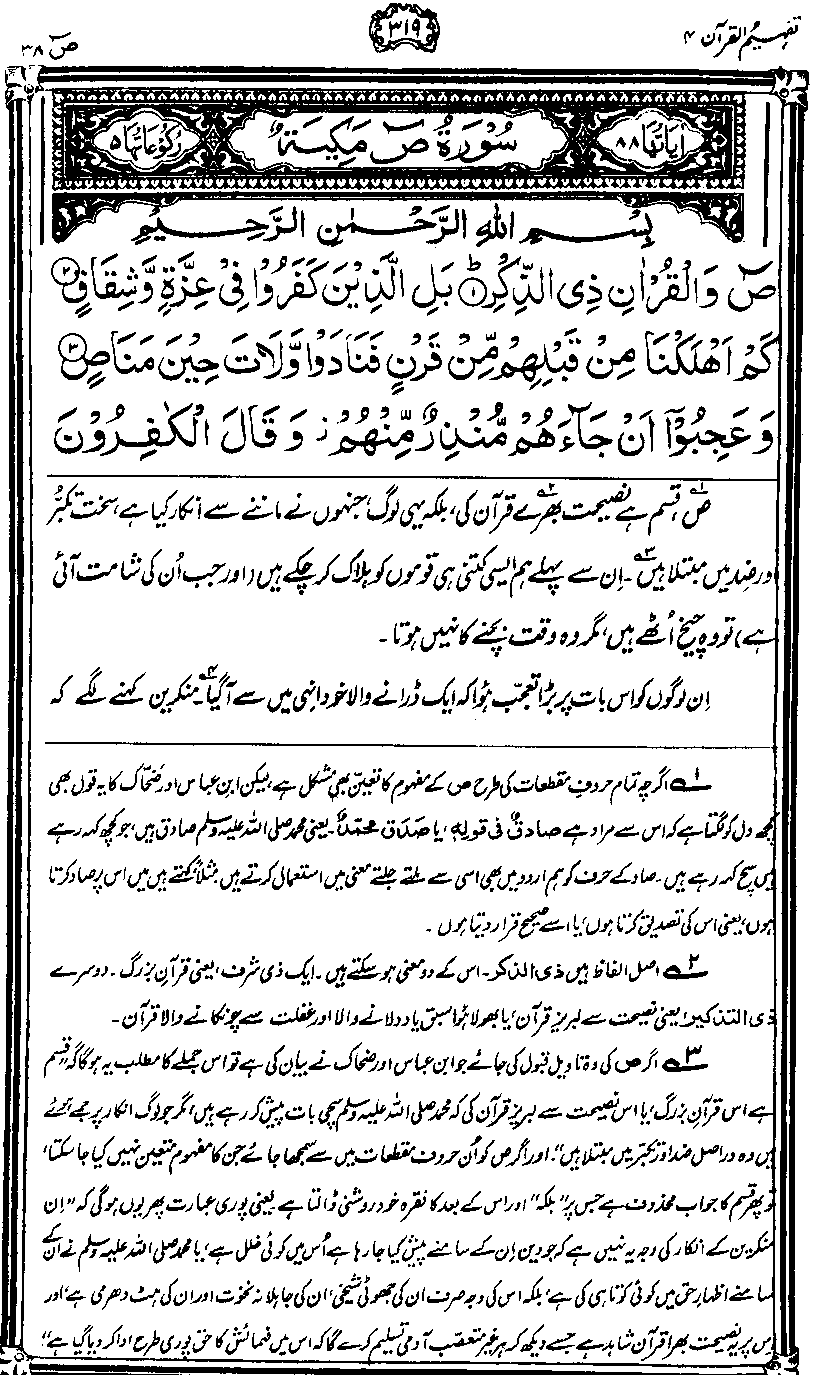 تفہیم القرآن ۴
۳۱۹
صٓ ۳۸
اٰیَاتُهَا ۸۸
سُوْرَةُ صٓ مَكِّيَّةٌ
رُكُوْعَاتُهَا ۵
بِسْمِ اللّٰهِ الرَّحْمٰنِ الرَّحِيْمِ
صٓ وَالْقُرْاٰنِ ذِی الذِّكْرِ ۱ بَلِ الَّذِیْنَ كَفَرُوْا فِیْ عِزَّةٍ وَّشِقَاقٍ ۲
كَمْ اَهْلَكْنَا مِنْ قَبْلِهِمْ مِّنْ قَرْنٍ فَنَادَوْا وَّلَاتَ حِیْنَ مَنَاصٍ ۳
وَعَجِبُوْۤا اَنْ جَآءَهُمْ مُّنْذِرٌ مِّنْهُمْ ز وَقَالَ الْكٰفِرُوْنَ
صٓ۱، قسم ہے نصیحت بھرے۲ قرآن کی، بلکہ یہی لوگ، جنہوں نے ماننے سے انکار کیا ہے، سخت تکبُّر
اور ضد میں مبتلا ہیں۳۔ اِن سے پہلے ہم ایسی کتنی ہی قوموں کو ہلاک کر چکے ہیں (اور جب اُن کی شامت آئی
ہے) تو وہ چیخ اُٹھے ہیں، مگر وہ وقت بچنے کا نہیں ہوتا۔
اِن لوگوں کو اس بات پر بڑا تعجب ہوا کہ ایک ڈرانے والا خود اِنہی میں سے آگیا۴۔ منکرین کہنے لگے کہ
۱ اگرچہ تمام حروفِ مقطعات کی طرح ص کے مفہوم کا تعین بھی مشکل ہے، لیکن ابن عباس اور ضحّاک کا یہ قول بھی
کچھ دل کو لگتا ہے کہ اس سے مراد ہے صادقٌ فی قولہٖ، یا صَدَقَ محمّدٌ۔ یعنی محمد صلی اللہ علیہ وسلم صادق ہیں، جو کچھ کہہ رہے
ہیں سچ کہہ رہے ہیں۔ صاد کے حرف کو ہم اردو میں بھی اسی سے ملتے جلتے معنی میں استعمال کرتے ہیں مثلاً کہتے ہیں میں اس پر صاد کرتا
ہوں، یعنی اس کی تصدیق کرتا ہوں، یا اسے صحیح قرار دیتا ہوں۔
۲ اصل الفاظ ہیں ذی الذکر۔ اس کے دو معنی ہو سکتے ہیں۔ ایک ذی شرف، یعنی قرآنِ بزرگ۔ دوسرے
ذی التذکیر، یعنی نصیحت سے لبریز قرآن، یا بھولا ہوا سبق یاد دلانے والا اور غفلت سے چونکانے والا قرآن۔
۳ اگر ص کی وہ تاویل قبول کی جائے جو ابن عباس اور ضحاک نے بیان کی ہے تو اس جملے کا مطلب یہ ہوگا کہ "قسم
ہے اس قرآنِ بزرگ، یا اس نصیحت سے لبریز قرآن کی کہ محمد صلی اللہ علیہ وسلم سچی بات پیش کر رہے ہیں، مگر جو لوگ انکار پر جمے ہوئے
ہیں وہ دراصل ضد اور تکبر میں مبتلا ہیں"۔ اور اگر ص کو اُن حروف مقطعات میں سے سمجھا جائے جن کا مفہوم متعین نہیں کیا جا سکتا،
تو پھر قسم کا جواب محذوف ہے جس پر "بلکہ" اور اس کے بعد کا فقرہ خود روشنی ڈالتا ہے۔ یعنی پوری عبارت پھر یوں ہوگی کہ "اِن
منکرین کے انکار کی وجہ یہ نہیں ہے کہ جو دین اِن کے سامنے پیش کیا جا رہا ہے اُس میں کوئی خلل ہے، یا محمد صلی اللہ علیہ وسلم نے اُن کے
سامنے اظہارِ حق میں کوئی کوتاہی کی ہے، بلکہ اس کی وجہ صرف ان کی جھوٹی شیخی، ان کی جاہلانہ نخوت اور ان کی ہٹ دھرمی ہے، اور
اس پر یہ نصیحت بھرا قرآن شاہد ہے جسے دیکھ کر ہر غیر متعصب آدمی تسلیم کرے گا کہ اس میں فہمائش کا حق پوری طرح ادا کر دیا گیا ہے"